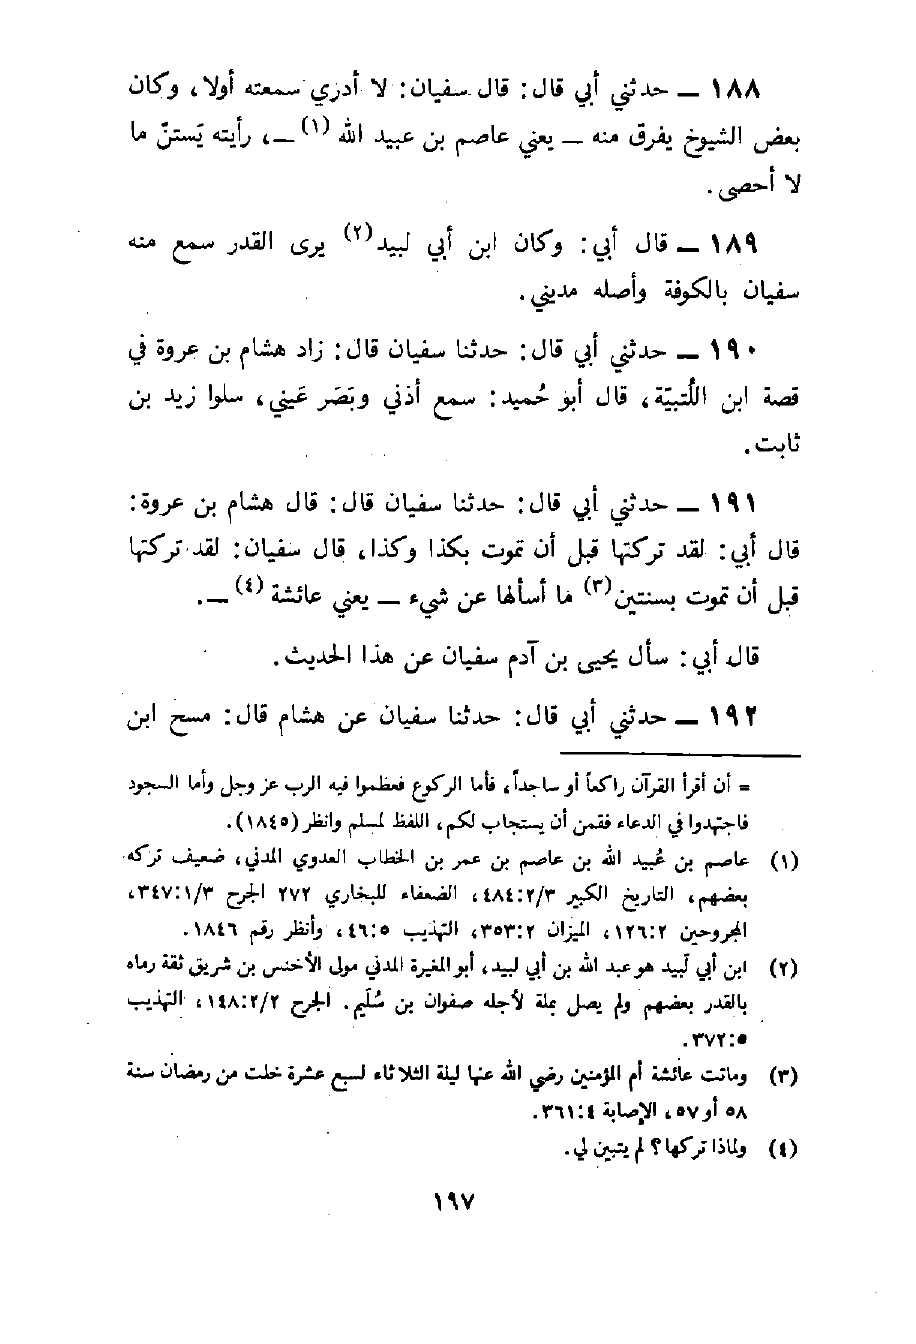 ١٨٨ ــ حدثني أبي قال: قال سفيان: لا أدري سمعته أولا، وكان
بعض الشيوخ يفرق منه ــ يعني عاصم بن عبيد الله (١) ــ، رأيته يَستنّ ما
لا أحصى.
١٨٩ ــ قال أبي: وكان ابن أبي لبيد(٢) يرى القدر سمع منه
سفيان بالكوفة وأصله مديني.
١٩٠ ــ حدثني أبي قال: حدثنا سفيان قال: زاد هشام بن عروة في
قصة ابن اللُتبيّة، قال أبو حُميد: سمع أذني وبَصَر عَيني، سلوا زيد بن
ثابت.
١٩١ ــ حدثني أبي قال: حدثنا سفيان قال: قال هشام بن عروة:
قال أبي: لقد تركتها قبل أن تموت بكذا وكذا، قال سفيان: لقد تركتها
قبل أن تموت بسنتين(٣) ما أسألها عن شيء ــ يعني عائشة (٤) ــ.
قال أبي: سأل يحيى بن آدم سفيان عن هذا الحديث.
١٩٢ ــ حدثني أبي قال: حدثنا سفيان عن هشام قال: مسح ابن
= أن أقرأ القرآن راكعاً أو ساجداً، فأما الركوع فعظموا فيه الرب عز وجل وأما السجود
فاجتهدوا في الدعاء فقمن أن يستجاب لكم، اللفظ لمسلم وانظر (١٨٤٥).
(١) عاصم بن عُبيد الله بن عاصم بن عمر بن الخطاب العدوي المدني، ضعيف تركه
بعضهم، التاريخ الكبير ٤٨٤:٢/٣، الضعفاء للبخاري ٢٧٢ الجرح ٣٤٧:١/٣،
المجروحين ١٢٦:٢، الميزان ٣٥٣:٢، التهذيب ٤٦:٥، وأنظر رقم ١٨٤٦.
(٢) ابن أبي لَبيد هو عبد الله بن أبي لبيد، أبو المغيرة المدني مولى الأخنس بن شريق ثقة رماه
بالقدر بعضهم ولم يصل عمله لأجله صفوان بن سُليم. الجرح ١٤٨:٢/٢، التهذيب
٣٧٢:٥.
(٣) وماتت عائشة أم المؤمنين رضي الله عنها ليلة الثلاثاء لسبع عشرة خلت من رمضان سنة
٥٨ أو ٥٧، الإصابة ٣٦١:٤.
(٤) ولماذا تركها؟ لم يتبين لي.
١٩٧